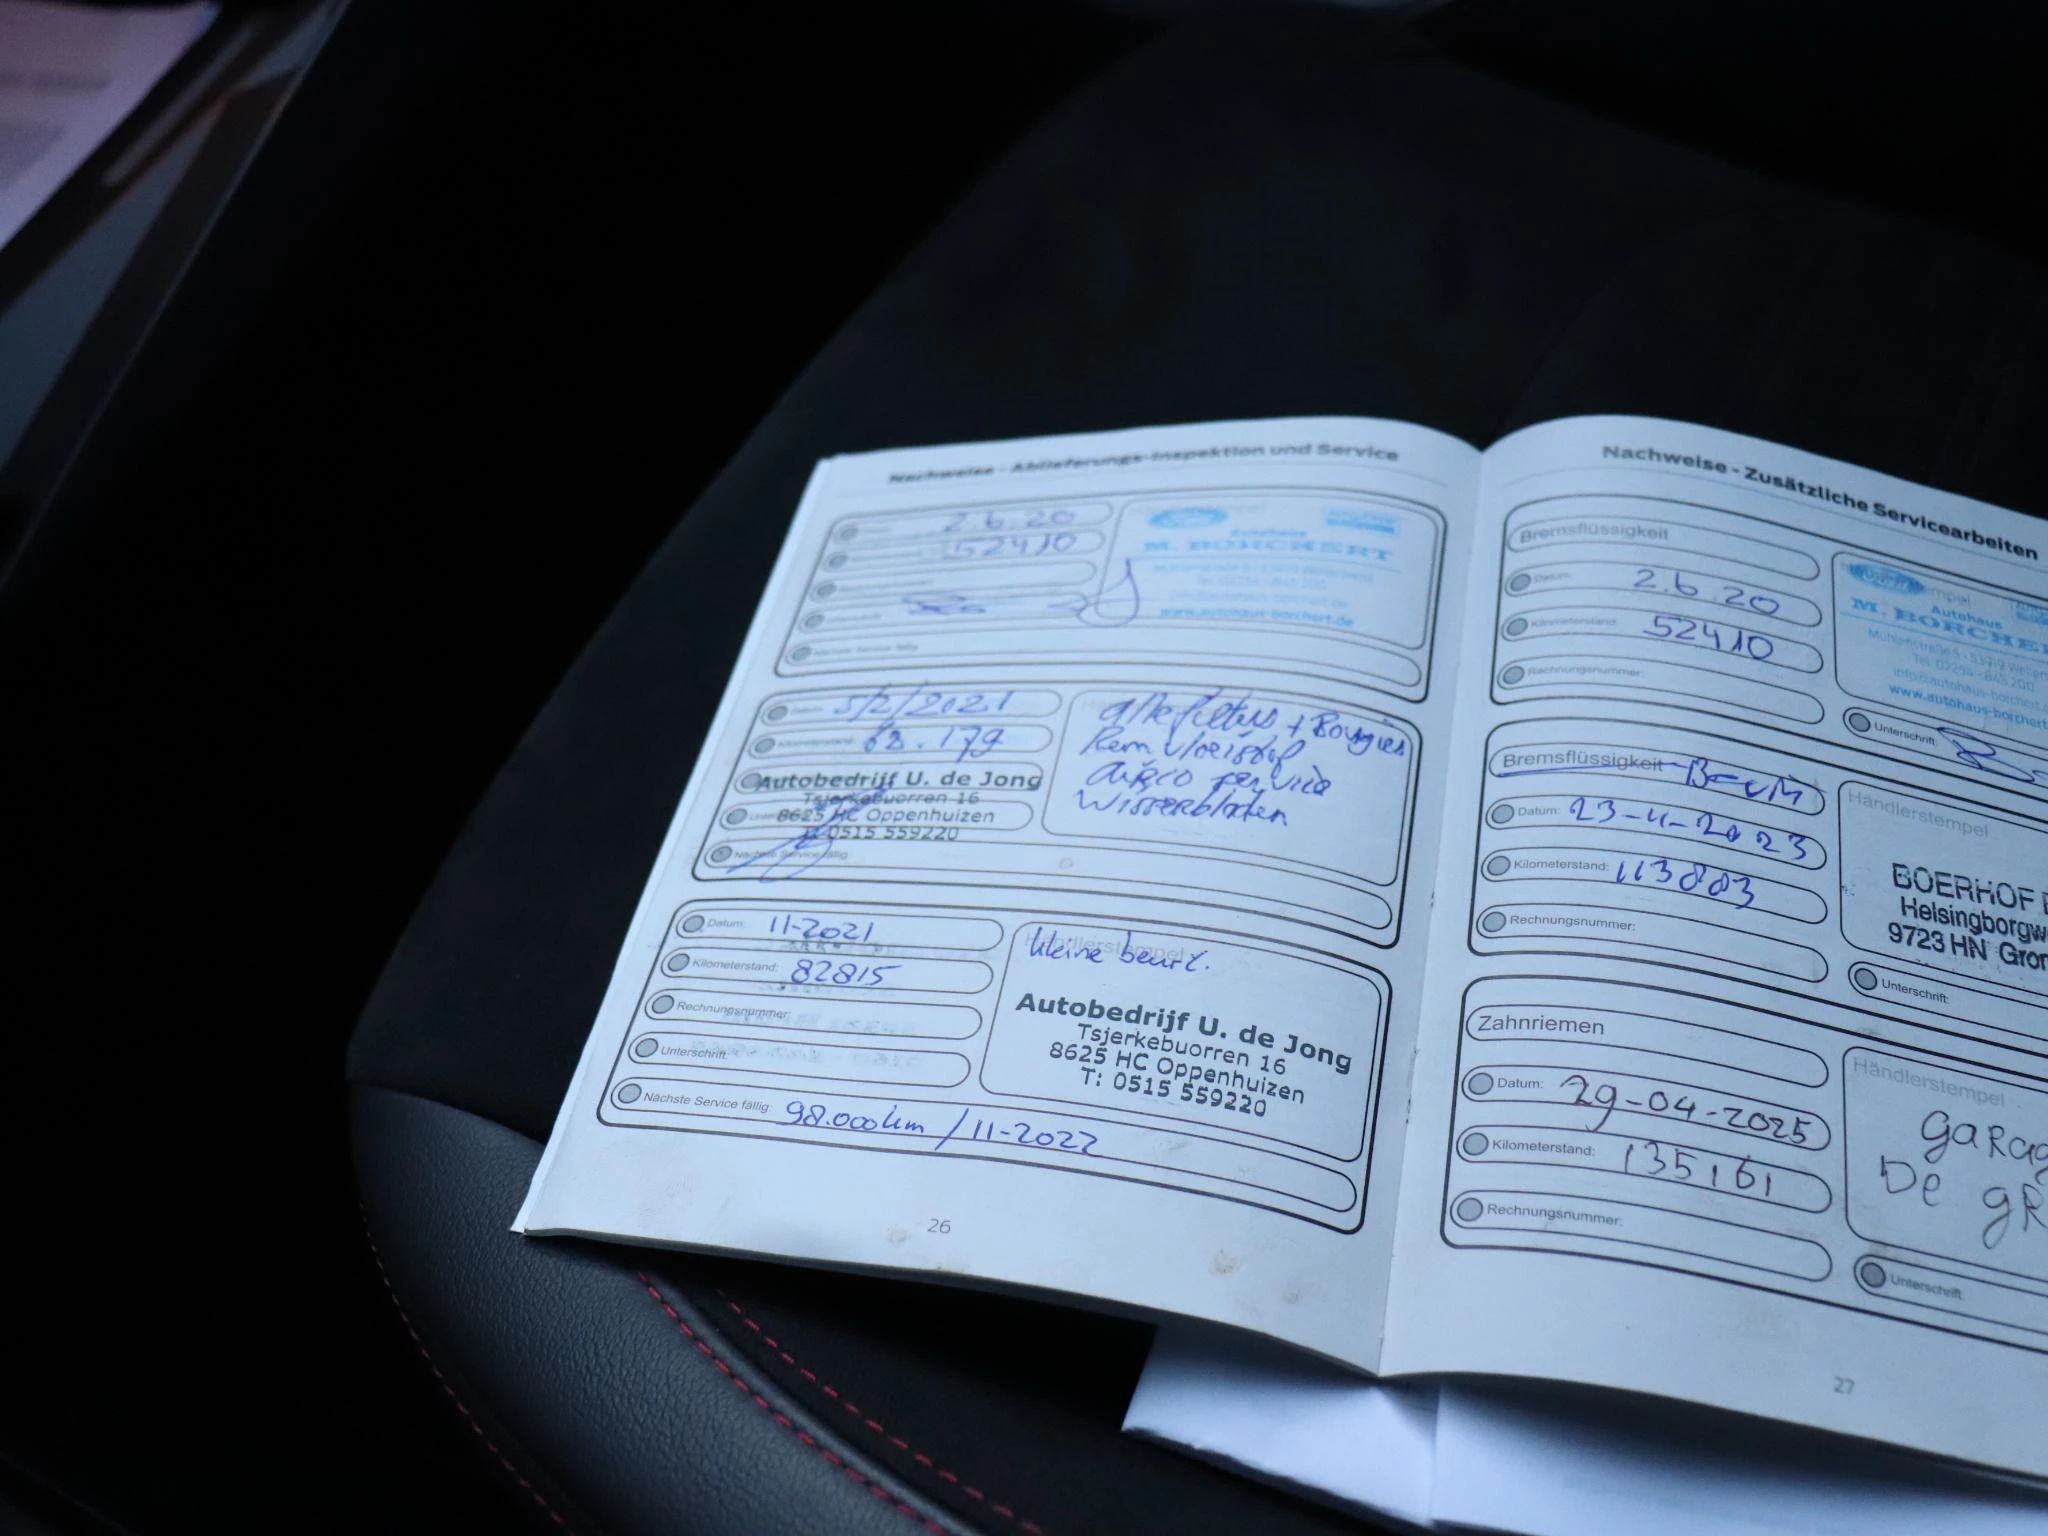 Nachweise - Ablieferungs-Inspektion und Service
2.6.20
52410
Autohaus
M. BORCHERT
www.autohaus-borchert.de
Nächste Service fällig
5/2/2021
Kilometerstand:
68.179
Autobedrijf U. de Jong
Tsjerkebuorren 16
8625 HC Oppenhuizen
T: 0515 559220
Nächste Service fällig:
alle filters + Bougies
Rem vloeistof
Airco service
Wisserbladen
Datum: 11-2021
Kilometerstand: 82815
Rechnungsnummer:
Unterschrift:
Nächste Service fällig: 98.000km / 11-2022
Händlerstempel
kleine beurt.
Autobedrijf U. de Jong
Tsjerkebuorren 16
8625 HC Oppenhuizen
T: 0515 559220
26
Nachweise - Zusätzliche Servicearbeiten
Bremsflüssigkeit
Datum: 2.6.20
Kilometerstand: 52410
Rechnungsnummer:
Autohaus
M. BORCHE
Tel. 02254 - 845 200
info@autohaus-borchert.
www.autohaus-borchert
Unterschrift:
Bremsflüssigkeit
Datum: 23-4-2023
Kilometerstand: 113883
Rechnungsnummer:
Händlerstempel
BOERHOF
Helsingborgw
9723 HN Gron
Unterschrift:
Zahnriemen
Datum: 29-04-2025
Kilometerstand: 135161
Rechnungsnummer:
Händlerstempel
gaRag
De gR
Unterschrift:
27